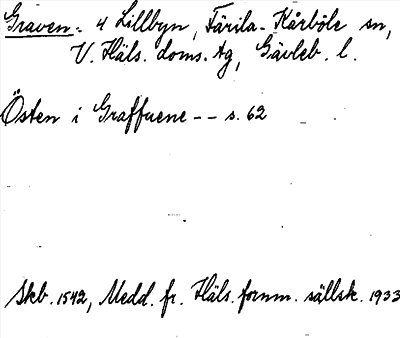 Graven: 4 Lillbyn, Färila-Kårböle sn,
V. Häls. doms. tg, Gävleb. l.
Östen i Graffuene -- s. 62
Skb. 1542, Medd. fr. Häls. fornm. sällsk. 1933